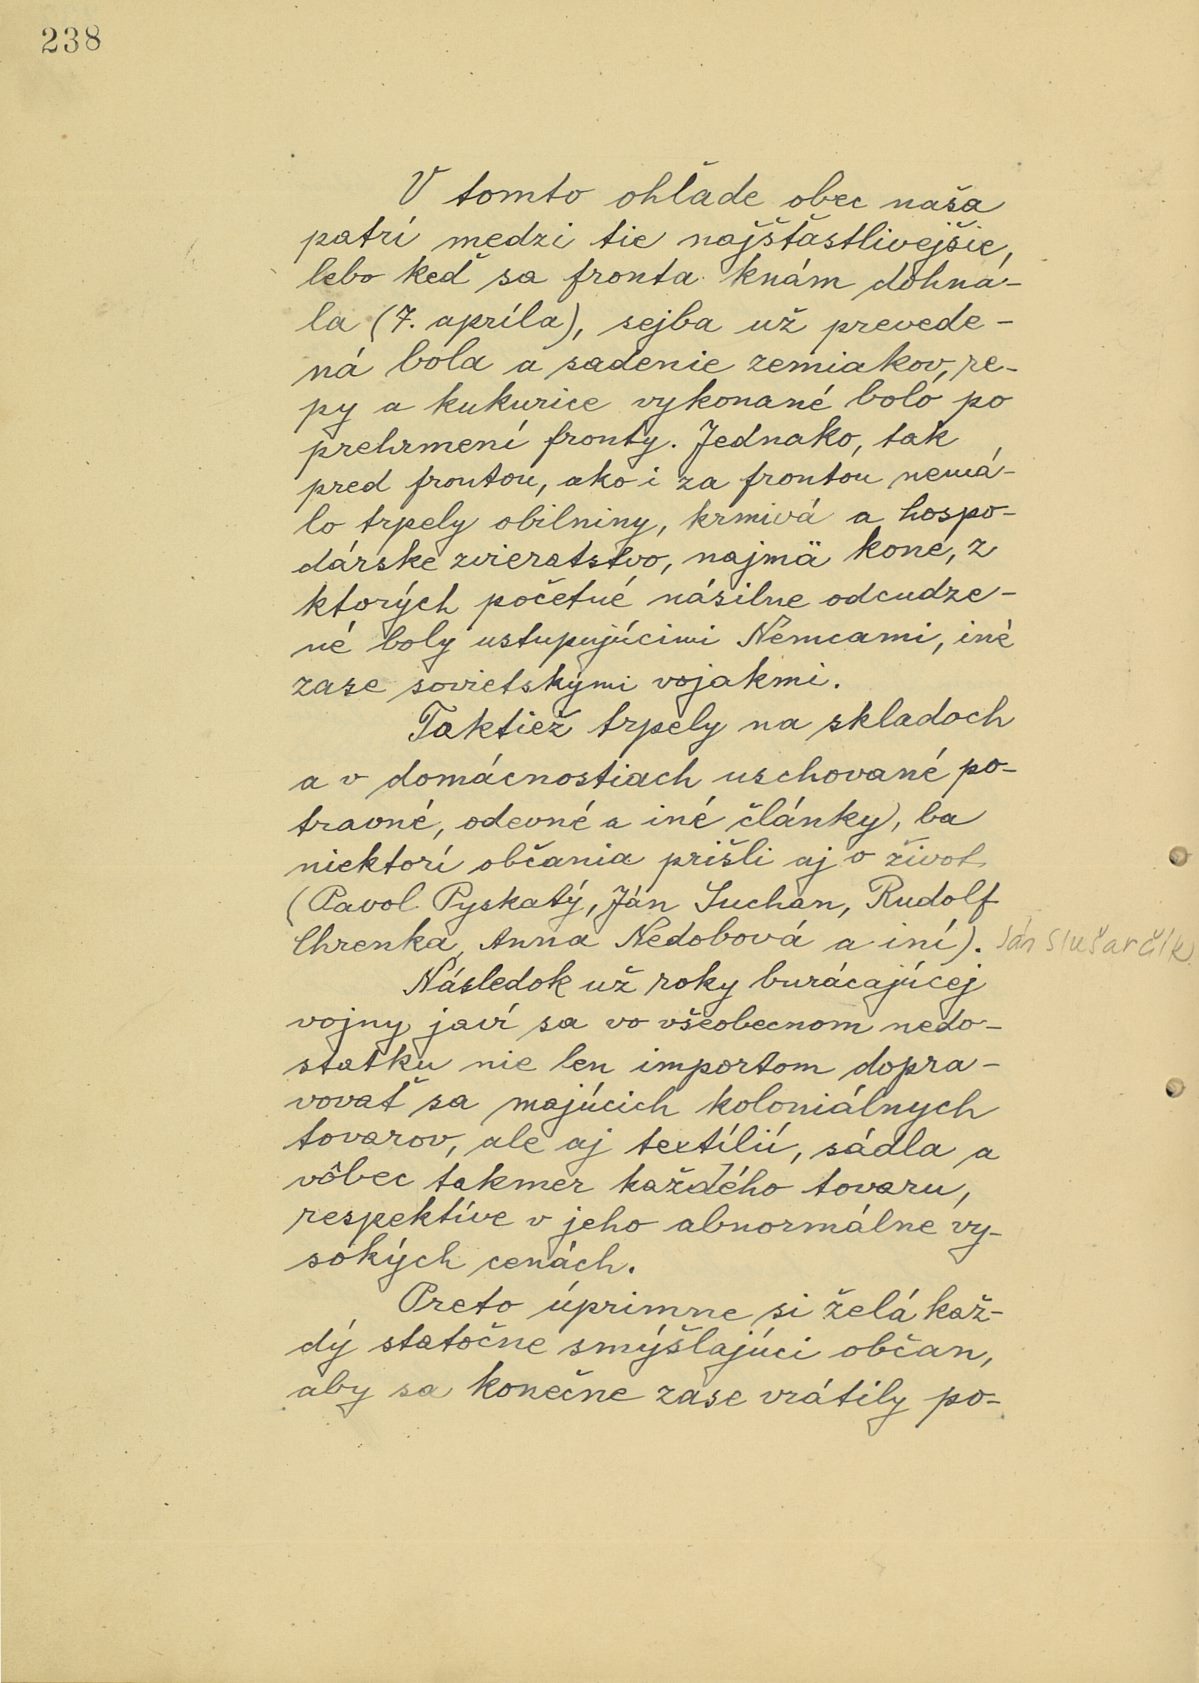 238
V tomto ohľade obec naša
patrí medzi tie najšťastlivejšie,
lebo keď sa fronta knám dohna-
la (7. apríla), sejba už prevede-
ná bola a sadenie zemiakov, re-
py a kukurice vykonané bolo po
prehrmení fronty. Jednako, tak
pred frontou, ako i za frontou nemá-
lo trpely obilniny, krmivá a hospo-
dárske zvieratstvo, najmä kone, z
ktorých početné násilne odcudze-
né boly ustupujúcimi Nemcami, iné
zase sovietskými vojakmi.
Taktiež trpely na skladoch
a v domácnostiach uschované po-
travné, odevné a iné články, ba
niektorí občania prišli aj o život
(Pavol Pyskatý, Ján Suchan, Rudolf
Chrenka, Anna Nedobová a iní). Ján Slušarčík
Následok už roky burácajúcej
vojny javí sa vo všeobecnom nedo-
statku nie len importom dopra-
vovať sa majúcich koloniálnych
tovarov, ale aj textílií, sádla a
vôbec takmer každého tovaru,
respektíve v jeho abnormálne vy-
sokých cenách.
Preto úprimne si želá kaž-
dý statočne smýšlajúci občan,
aby sa konečne zase vrátily po-